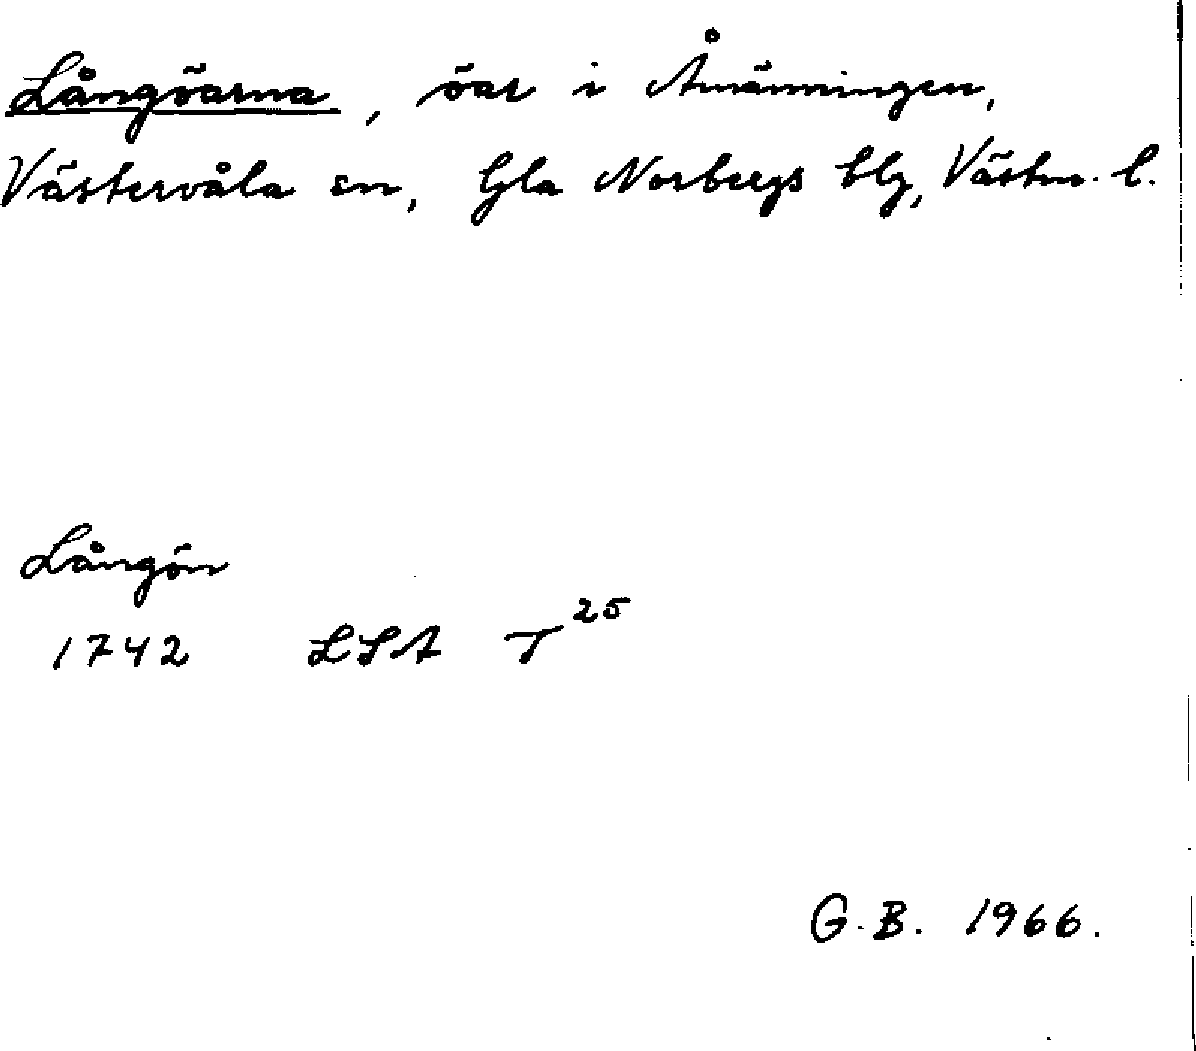 Långöarna, öar i Åmänningen,
Västervåla sn, Gla Norbergs blg, Västm. l.
Långön
1742 LSA T 25
G. B. 1966.